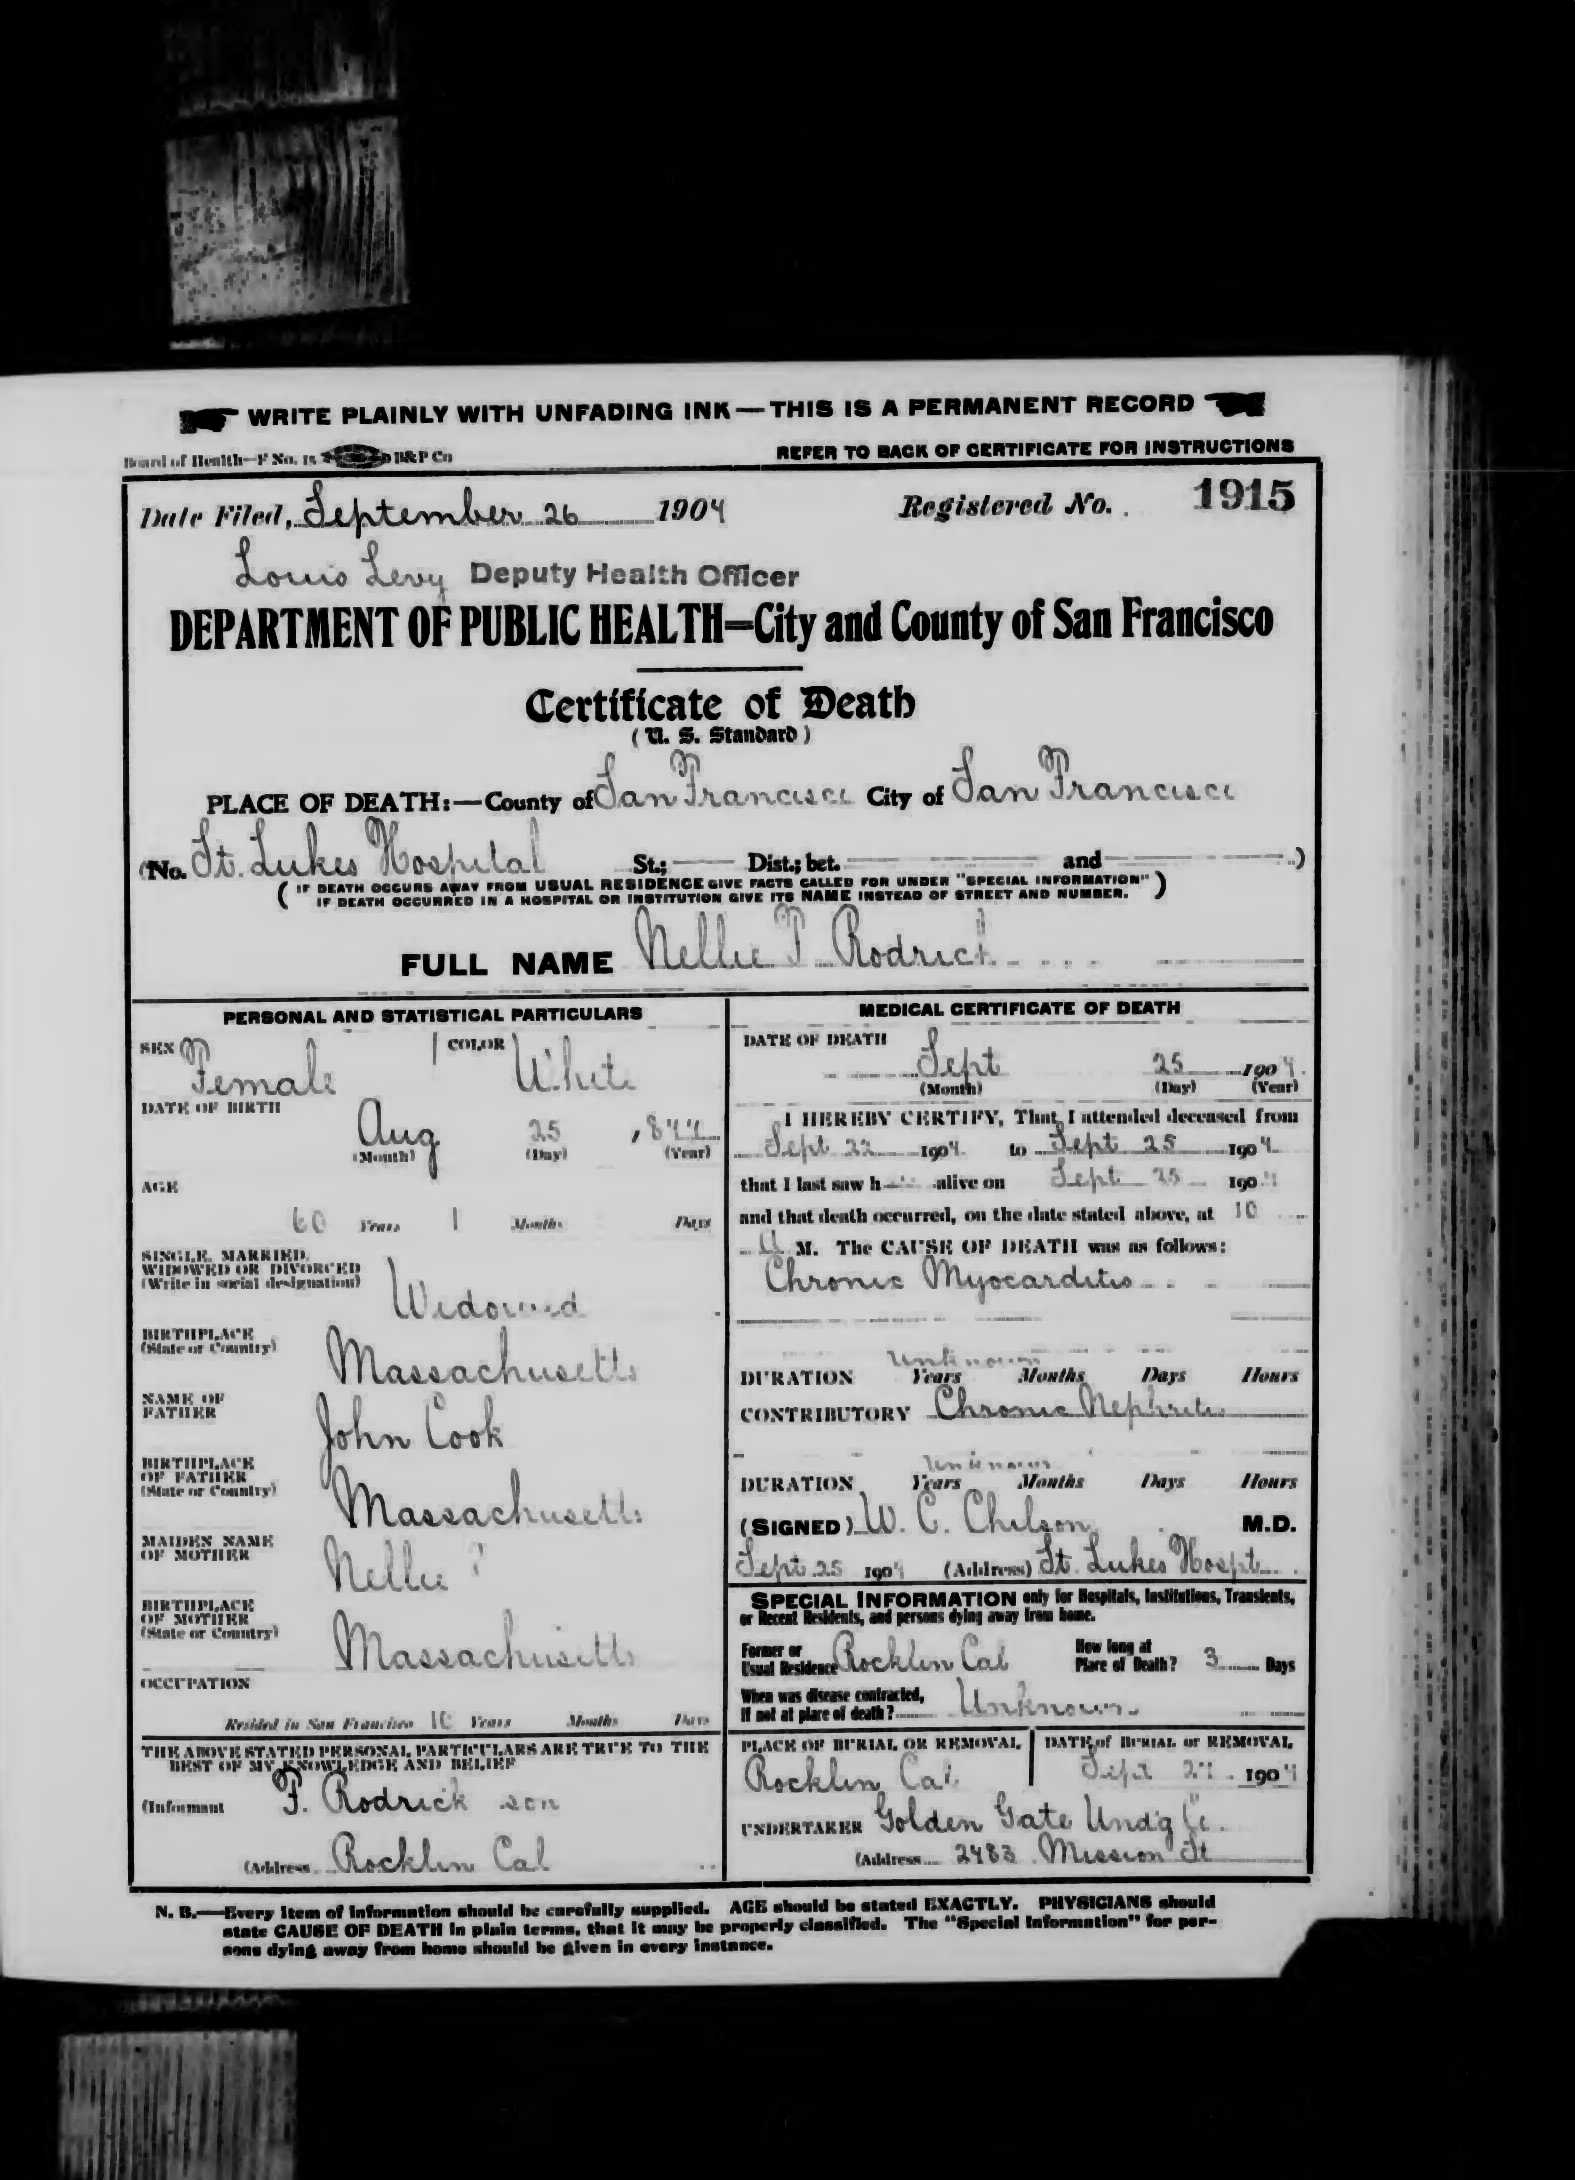 WRITE PLAINLY WITH UNFADING INK — THIS IS A PERMANENT RECORD
Board of Health—F No. 15 B&P Co REFER TO BACK OF CERTIFICATE FOR INSTRUCTIONS
Date Filed, September 26 1904 Registered No. 1915
Louis Levy Deputy Health Officer
DEPARTMENT OF PUBLIC HEALTH=City and County of San Francisco
Certificate of Death
(U. S. Standard)
PLACE OF DEATH:—County of San Francisco City of San Francisco
(No. St. Lukes Hospital St.; Dist.; bet. and )
( IF DEATH OCCURS AWAY FROM USUAL RESIDENCE GIVE FACTS CALLED FOR UNDER "SPECIAL INFORMATION" )
( IF DEATH OCCURRED IN A HOSPITAL OR INSTITUTION GIVE ITS NAME INSTEAD OF STREET AND NUMBER. )
FULL NAME Nellie T Rodrick
PERSONAL AND STATISTICAL PARTICULARS
SEX Female COLOR White
DATE OF BIRTH
Aug 25 1844
(Month) (Day) (Year)
AGE
60 Years 1 Months Days
SINGLE, MARRIED,
WIDOWED OR DIVORCED
(Write in social designation)
Widowed
BIRTHPLACE
(State or Country)
Massachusetts
NAME OF
FATHER
John Cook
BIRTHPLACE
OF FATHER
(State or Country)
Massachusetts
MAIDEN NAME
OF MOTHER
Nellie ?
BIRTHPLACE
OF MOTHER
(State or Country)
Massachusetts
OCCUPATION
Resided in San Francisco 10 Years Months Days
THE ABOVE STATED PERSONAL PARTICULARS ARE TRUE TO THE
BEST OF MY KNOWLEDGE AND BELIEF
(Informant F. Rodrick son
(Address Rocklin Cal
MEDICAL CERTIFICATE OF DEATH
DATE OF DEATH
Sept 25 1904
(Month) (Day) (Year)
I HEREBY CERTIFY, That I attended deceased from
Sept 22 1904 to Sept 25 1904
that I last saw h alive on Sept 25 1904
and that death occurred, on the date stated above, at 10
a M. The CAUSE OF DEATH was as follows:
Chronic Myocarditis
Unknown
DURATION Years Months Days Hours
CONTRIBUTORY Chronic Nephritis
Unknown
DURATION Years Months Days Hours
(SIGNED) W. C. Chilson M.D.
Sept 25 1904 (Address) St. Lukes Hospt
SPECIAL INFORMATION only for Hospitals, Institutions, Transients,
or Recent Residents, and persons dying away from home.
Former or
Usual Residence Rocklin Cal
How long at
Place of Death? 3 Days
When was disease contracted,
If not at place of death? Unknown
PLACE OF BURIAL OR REMOVAL
Rocklin Cal
DATE of BURIAL or REMOVAL
Sept 27 1904
UNDERTAKER Golden Gate Und'g Co.
(Address 2483 Mission St
N. B.—Every item of information should be carefully supplied. AGE should be stated EXACTLY. PHYSICIANS should
state CAUSE OF DEATH in plain terms, that it may be properly classified. The "Special Information" for per-
sons dying away from home should be given in every instance.